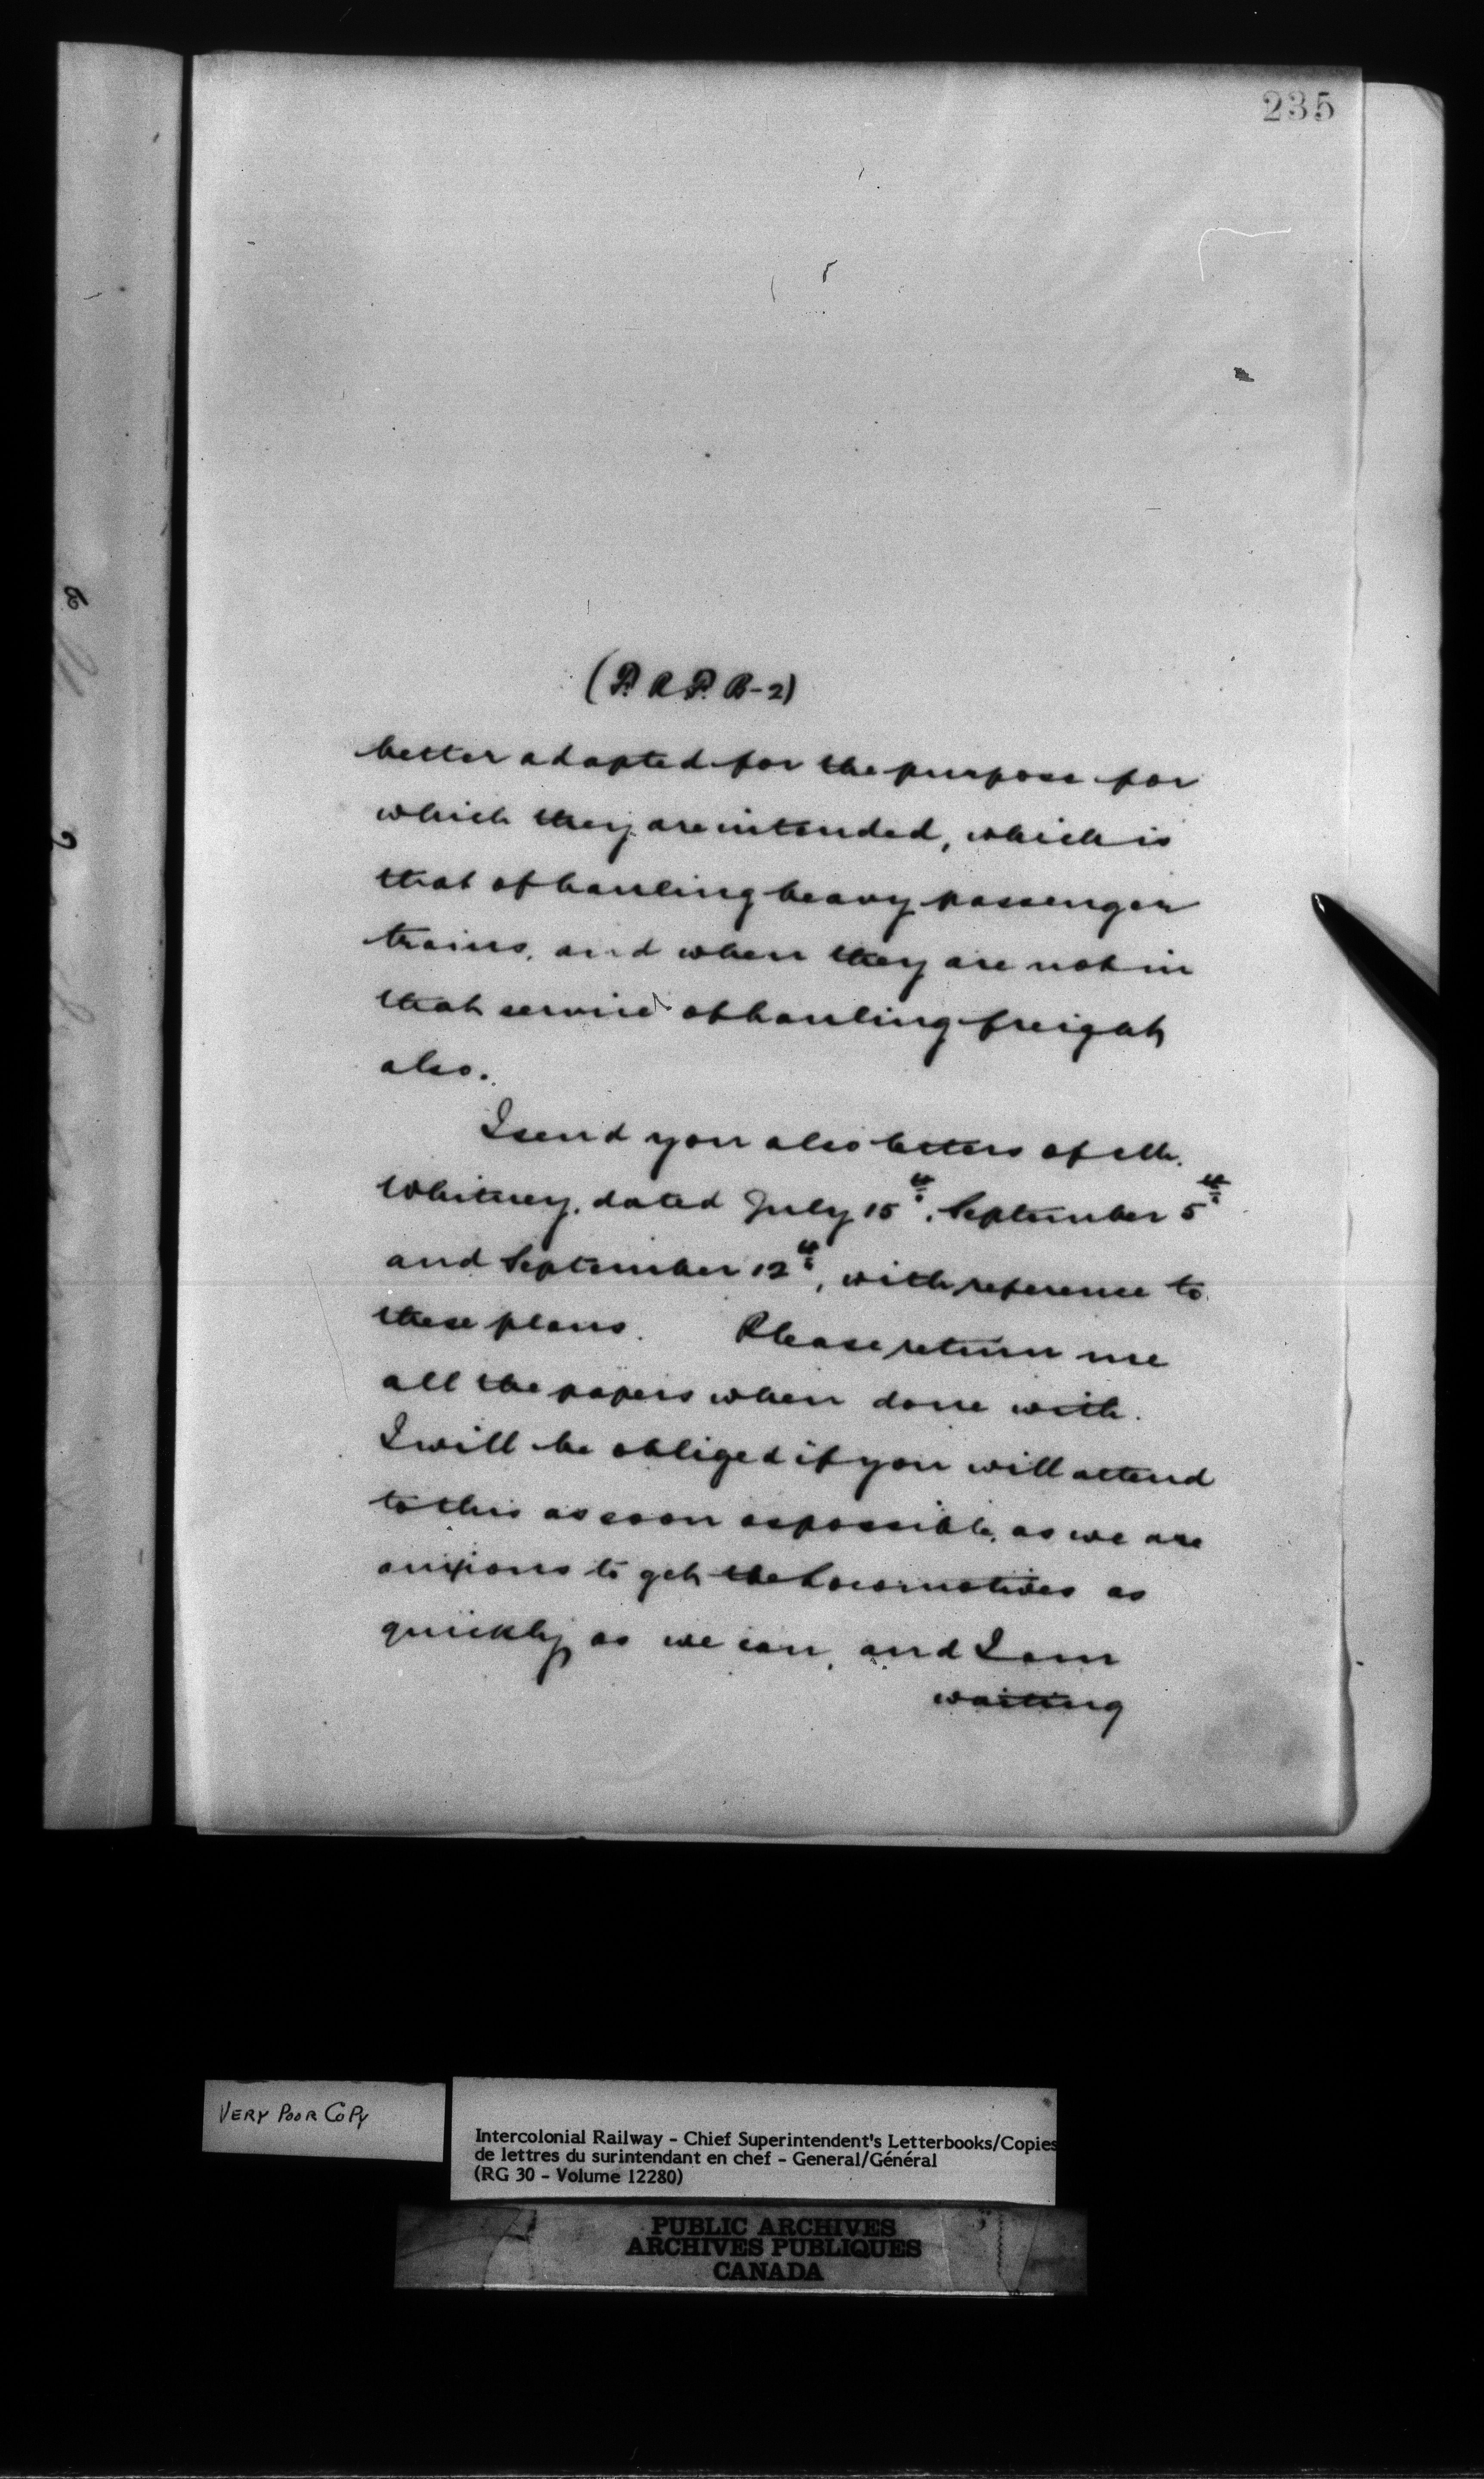 235
(P. R. P. B-2)
better adapted for the purpose for
which they are intended, which is
that of hauling heavy passenger
trains, and when they are not in
that service of hauling freight
also.
I send you also letters of Mr.
Whitney, dated July 15th, September 5th
and September 12th, with reference to
these plans. Please return me
all the papers when done with.
I will be obliged if you will attend
to this as soon as possible, as we are
anxious to get the Locomotives as
quickly as we can, and I am
waiting
VERY POOR COPY
Intercolonial Railway - Chief Superintendent's Letterbooks/Copies
de lettres du surintendant en chef - General/Général
(RG 30 - Volume 12280)
PUBLIC ARCHIVES
ARCHIVES PUBLIQUES
CANADA